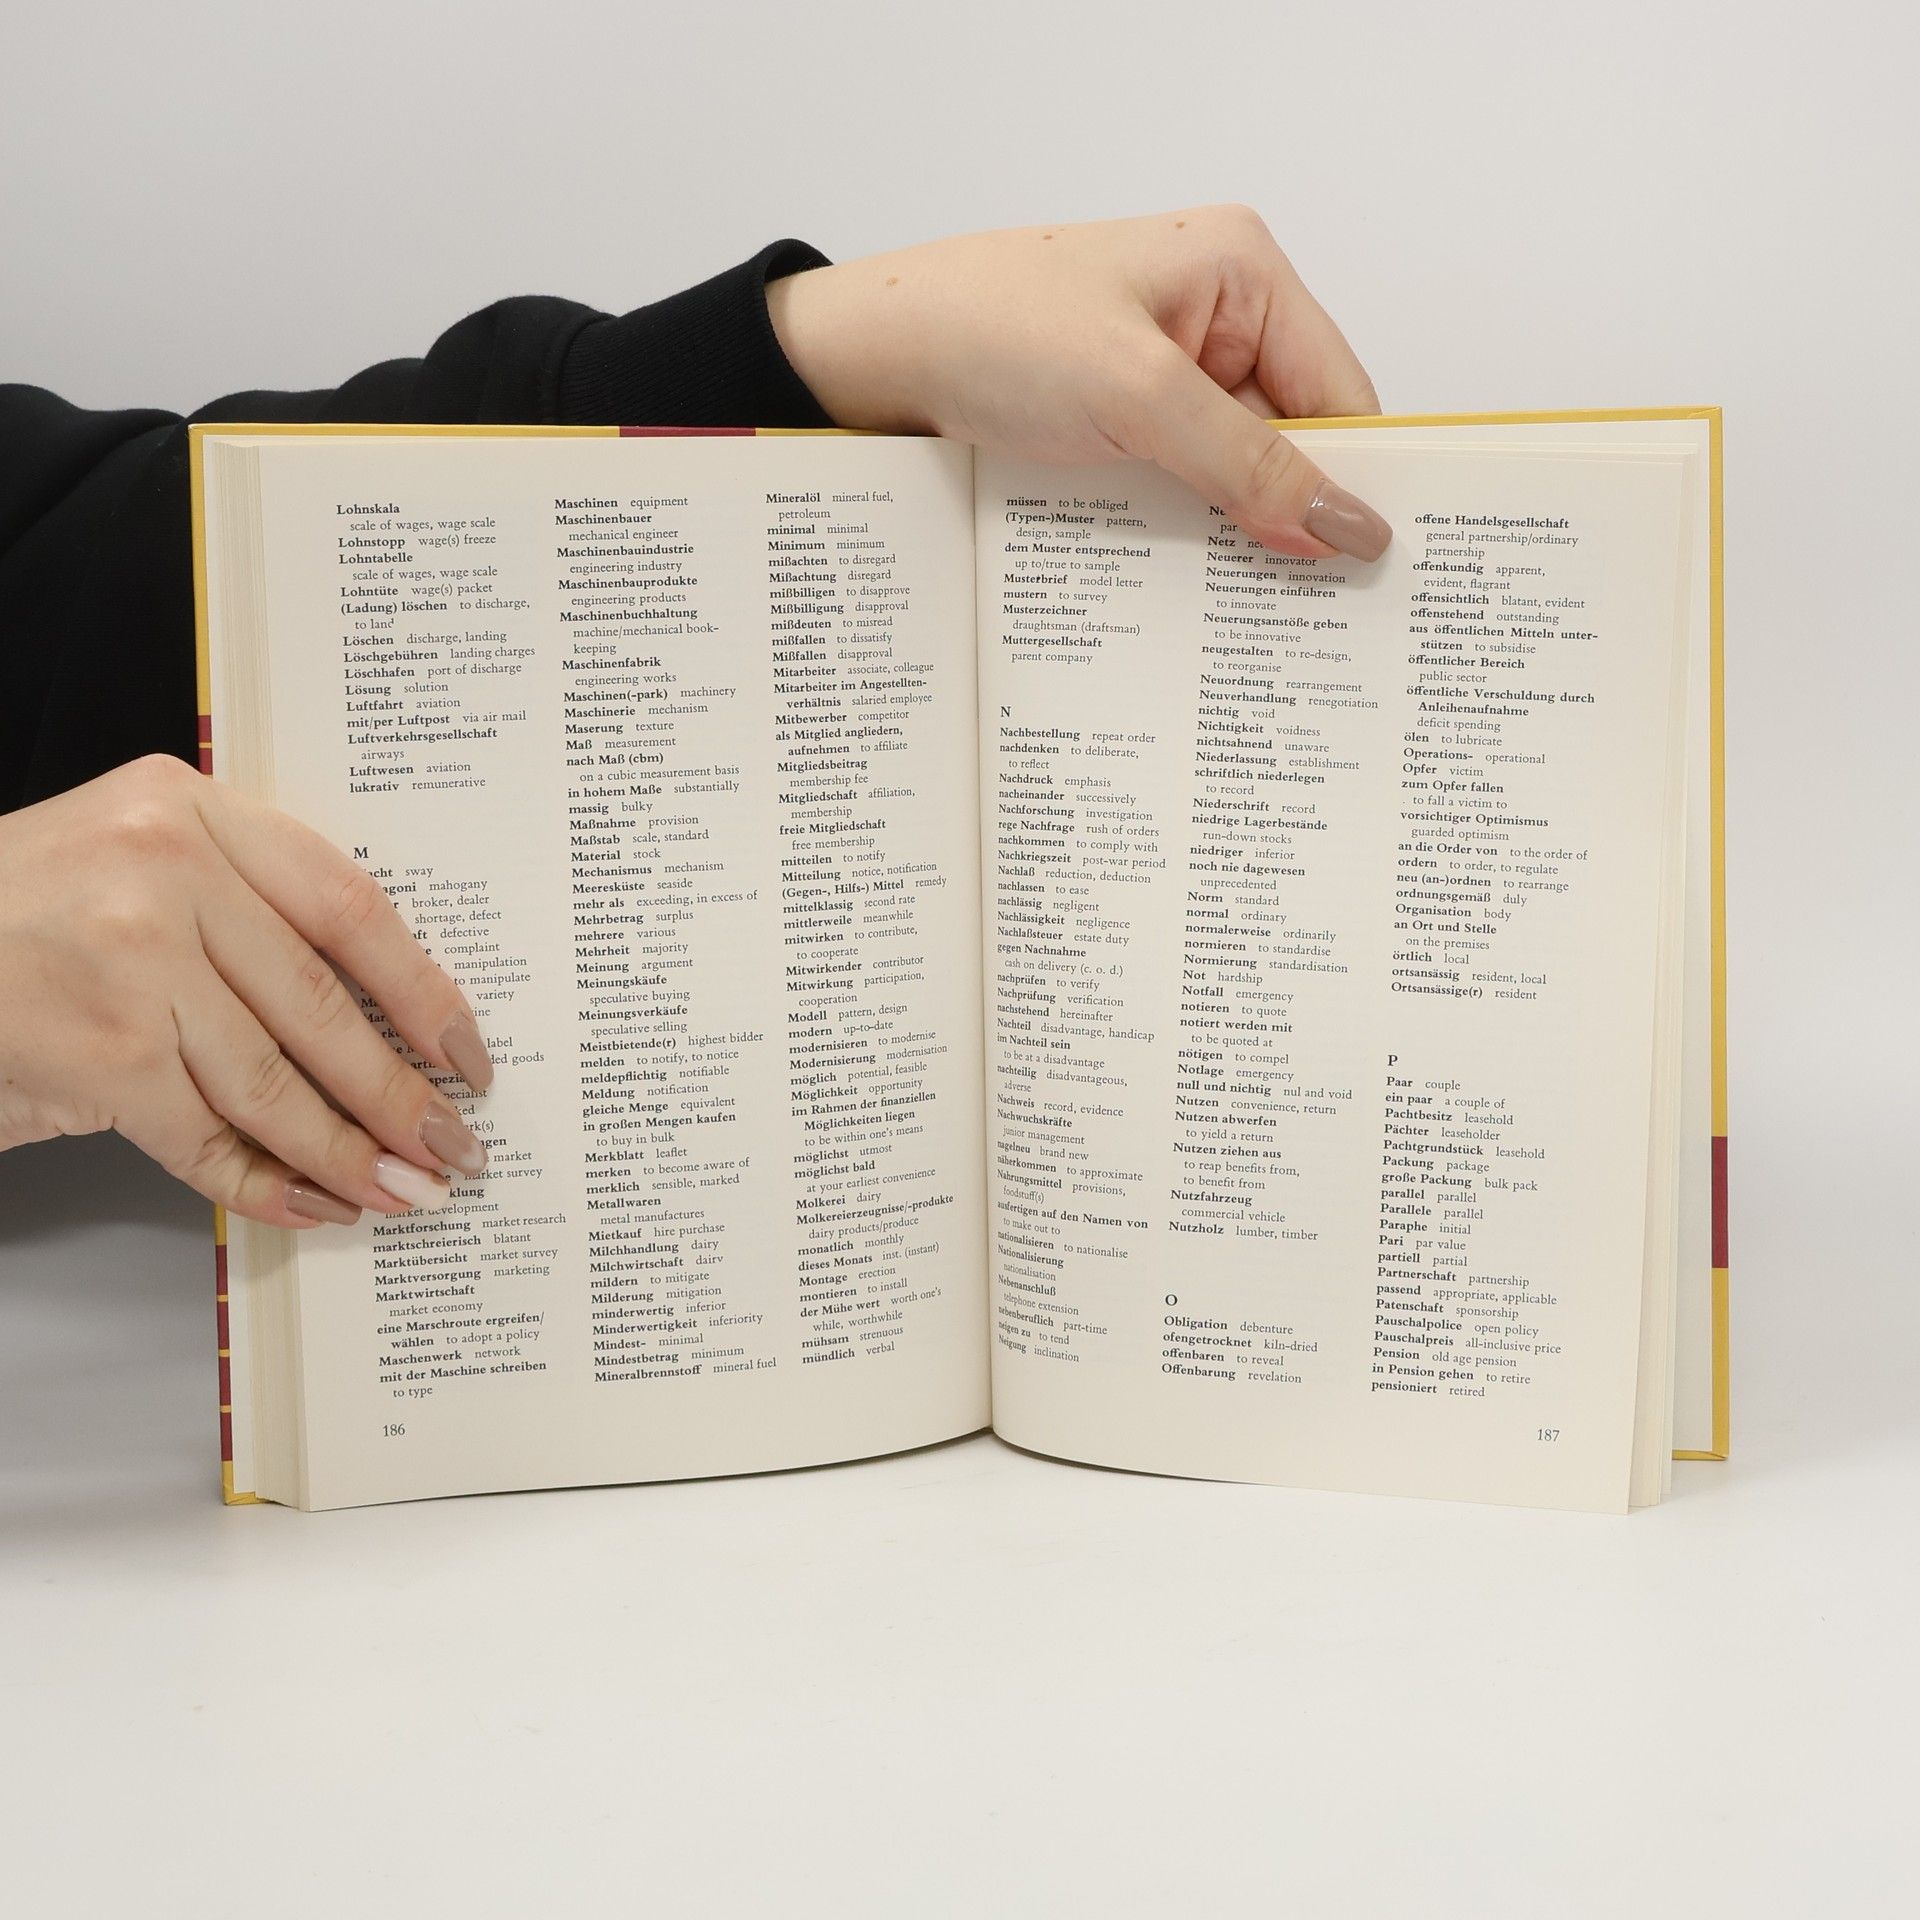 Lohnskala
scale of wages, wage scale
Lohnstopp wage(s) freeze
Lohntabelle
scale of wages, wage scale
Lohntüte wage(s) packet
(Ladung) löschen to discharge,
to land
Löschen discharge, landing
Löschgebühren landing charges
Löschhafen port of discharge
Lösung solution
Luftfahrt aviation
mit/per Luftpost via air mail
Luftverkehrsgesellschaft
airways
Luftwesen aviation
lukrativ remunerative
M
sway
mahogany
broker, dealer
shortage, defect
defective
complaint
manipulation
to manipulate
variety
label
goods
market
market survey
market development
Marktforschung market research
marktschreierisch blatant
Marktübersicht market survey
Marktversorgung marketing
Marktwirtschaft
market economy
eine Marschroute ergreifen/
wählen to adopt a policy
Maschenwerk network
mit der Maschine schreiben
to type
186
Maschinen equipment
Maschinenbauer
mechanical engineer
Maschinenbauindustrie
engineering industry
Maschinenbauprodukte
engineering products
Maschinenbuchhaltung
machine/mechanical book-
keeping
Maschinenfabrik
engineering works
Maschinen(-park) machinery
Maschinerie mechanism
Maserung texture
Maß measurement
nach Maß (cbm)
on a cubic measurement basis
in hohem Maße substantially
massig bulky
Maßnahme provision
Maßstab scale, standard
Material stock
Mechanismus mechanism
Meeresküste seaside
mehr als exceeding, in excess of
Mehrbetrag surplus
mehrere various
Mehrheit majority
Meinung argument
Meinungskäufe
speculative buying
Meinungsverkäufe
speculative selling
Meistbietende(r) highest bidder
melden to notify, to notice
meldepflichtig notifiable
Meldung notification
gleiche Menge equivalent
in großen Mengen kaufen
to buy in bulk
Merkblatt leaflet
merken to become aware of
merklich sensible, marked
Metallwaren
metal manufactures
Mietkauf hire purchase
Milchhandlung dairy
Milchwirtschaft dairy
mildern to mitigate
Milderung mitigation
minderwertig inferior
Minderwertigkeit inferiority
Mindest- minimal
Mindestbetrag minimum
Mineralbrennstoff mineral fuel
Mineralöl mineral fuel,
petroleum
minimal minimal
Minimum minimum
mißachten to disregard
Mißachtung disregard
mißbilligen to disapprove
Mißbilligung disapproval
mißdeuten to misread
mißfallen to dissatisfy
Mißfallen disapproval
Mitarbeiter associate, colleague
Mitarbeiter im Angestellten-
verhältnis salaried employee
Mitbewerber competitor
als Mitglied angliedern,
aufnehmen to affiliate
Mitgliedsbeitrag
membership fee
Mitgliedschaft affiliation,
membership
freie Mitgliedschaft
free membership
mitteilen to notify
Mitteilung notice, notification
(Gegen-, Hilfs-) Mittel remedy
mittelklassig second rate
mittlerweile meanwhile
mitwirken to contribute,
to cooperate
Mitwirkender contributor
Mitwirkung participation,
cooperation
Modell pattern, design
modern up-to-date
modernisieren to modernise
Modernisierung modernisation
möglich potential, feasible
Möglichkeit opportunity
im Rahmen der finanziellen
Möglichkeiten liegen
to be within one's means
möglichst utmost
möglichst bald
at your earliest convenience
Molkerei dairy
Molkereierzeugnisse/-produkte
dairy products/produce
monatlich monthly
dieses Monats inst. (instant)
Montage erection
montieren to install
der Mühe wert worth one's
while, worthwhile
mühsam strenuous
mündlich verbal
müssen to be obliged
(Typen-)Muster pattern,
design, sample
dem Muster entsprechend
up to/true to sample
Musterbrief model letter
mustern to survey
Musterzeichner
draughtsman (draftsman)
Muttergesellschaft
parent company
N
Nachbestellung repeat order
nachdenken to deliberate,
to reflect
Nachdruck emphasis
nacheinander successively
Nachforschung investigation
rege Nachfrage rush of orders
nachkommen to comply with
Nachkriegszeit post-war period
Nachlaß reduction, deduction
nachlassen to ease
nachlässig negligent
Nachlässigkeit negligence
Nachlaßsteuer estate duty
gegen Nachnahme
cash on delivery (c. o. d.)
nachprüfen to verify
Nachprüfung verification
nachstehend hereinafter
Nachteil disadvantage, handicap
im Nachteil sein
to be at a disadvantage
nachteilig disadvantageous,
adverse
Nachweis record, evidence
Nachwuchskräfte
junior management
nagelneu brand new
näherkommen to approximate
Nahrungsmittel provisions,
foodstuff(s)
ausfertigen auf den Namen von
to make out to
nationalisieren to nationalise
Nationalisierung
nationalisation
Nebenanschluß
telephone extension
nebenberuflich part-time
neigen zu to tend
Neigung inclination
par
Netz
Neuerer innovator
Neuerungen innovation
Neuerungen einführen
to innovate
Neuerungsanstöße geben
to be innovative
neugestalten to re-design,
to reorganise
Neuordnung rearrangement
Neuverhandlung renegotiation
nichtig void
Nichtigkeit voidness
nichtsahnend unaware
Niederlassung establishment
schriftlich niederlegen
to record
Niederschrift record
niedrige Lagerbestände
run-down stocks
niedriger inferior
noch nie dagewesen
unprecedented
Norm standard
normal ordinary
normalerweise ordinarily
normieren to standardise
Normierung standardisation
Not hardship
Notfall emergency
notieren to quote
notiert werden mit
to be quoted at
nötigen to compel
Notlage emergency
null und nichtig nul and void
Nutzen convenience, return
Nutzen abwerfen
to yield a return
Nutzen ziehen aus
to reap benefits from,
to benefit from
Nutzfahrzeug
commercial vehicle
Nutzholz lumber, timber
O
Obligation debenture
ofengetrocknet kiln-dried
offenbaren to reveal
Offenbarung revelation
offene Handelsgesellschaft
general partnership/ordinary
partnership
offenkundig apparent,
evident, flagrant
offensichtlich blatant, evident
offenstehend outstanding
aus öffentlichen Mitteln unter-
stützen to subsidise
öffentlicher Bereich
public sector
öffentliche Verschuldung durch
Anleihenaufnahme
deficit spending
ölen to lubricate
Operations- operational
Opfer victim
zum Opfer fallen
to fall a victim to
vorsichtiger Optimismus
guarded optimism
an die Order von to the order of
ordern to order, to regulate
neu (an-)ordnen to rearrange
ordnungsgemäß duly
Organisation body
an Ort und Stelle
on the premises
örtlich local
ortsansässig resident, local
Ortsansässige(r) resident
P
Paar couple
ein paar a couple of
Pachtbesitz leasehold
Pächter leaseholder
Pachtgrundstück leasehold
Packung package
große Packung bulk pack
parallel parallel
Parallele parallel
Paraphe initial
Pari par value
partiell partial
Partnerschaft partnership
passend appropriate, applicable
Patenschaft sponsorship
Pauschalpolice open policy
Pauschalpreis all-inclusive price
Pension old age pension
in Pension gehen to retire
pensioniert retired
187